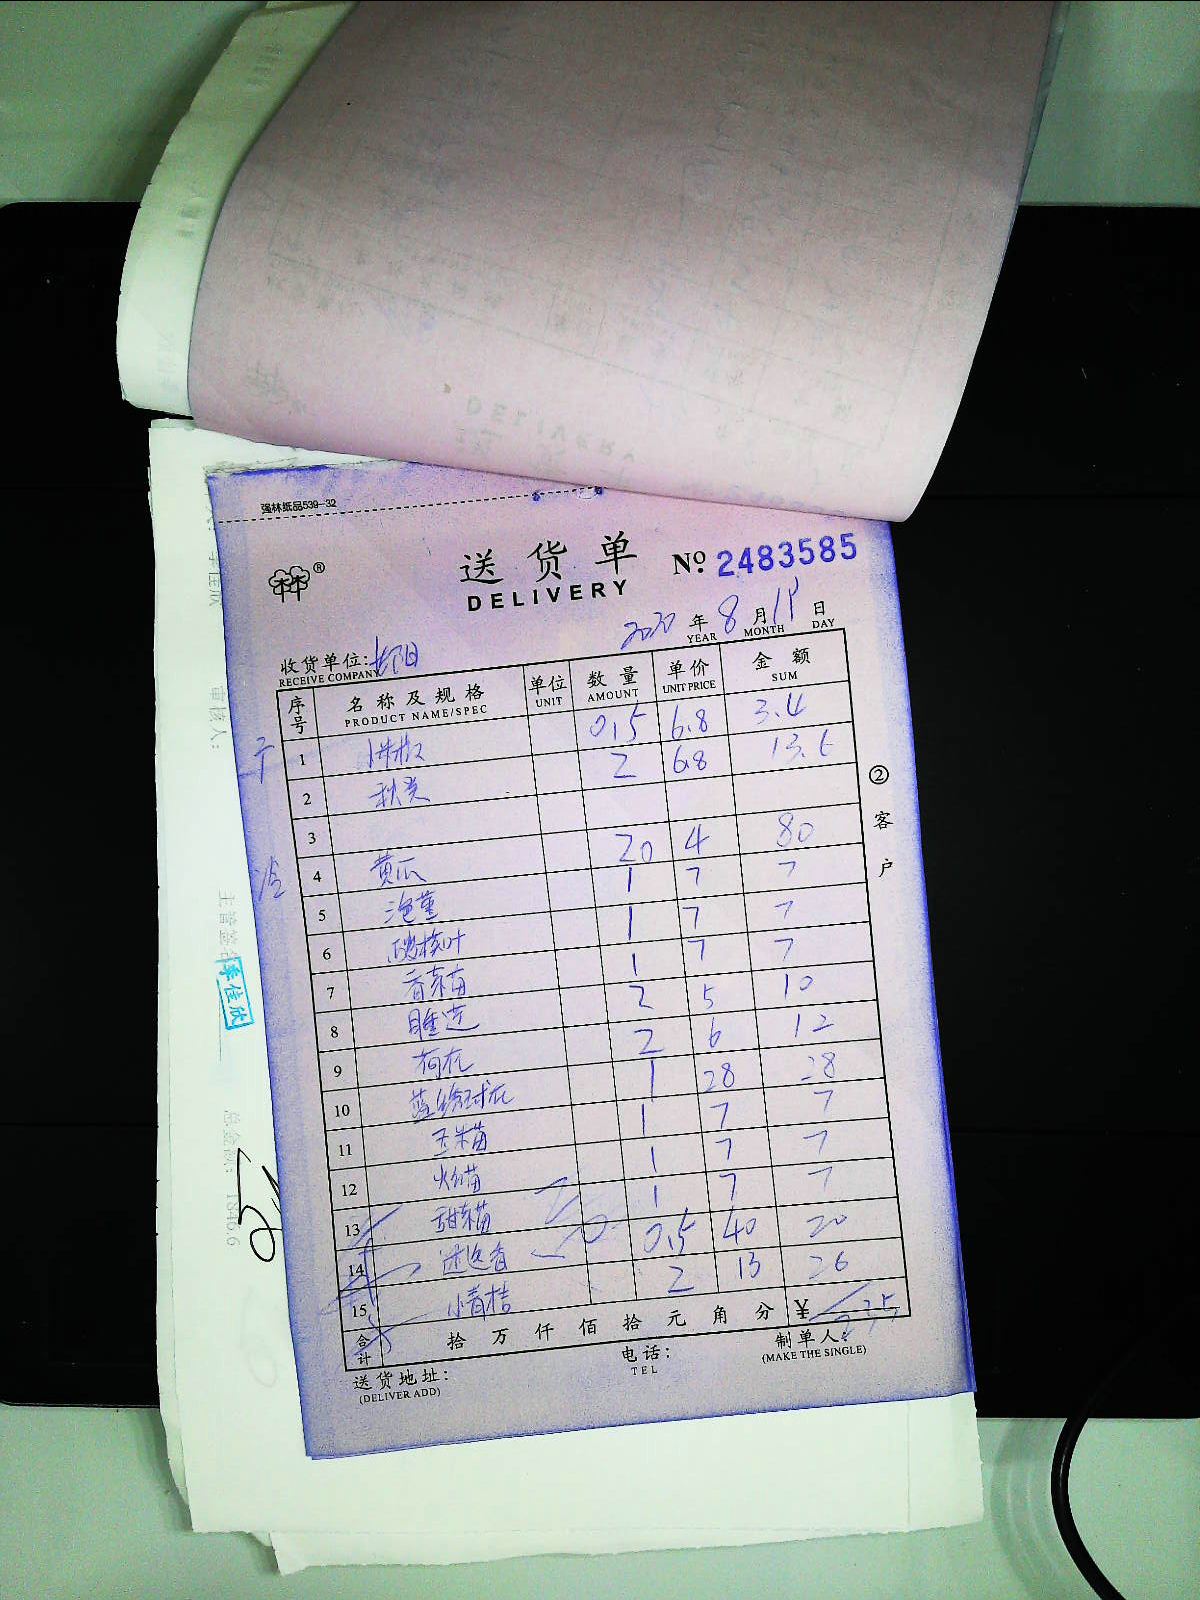 强林纸品539-32
林®
送货单 No. 2483585
DELIVERY
2020 年 8 月 19 日
YEAR MONTH DAY
收货单位:
RECEIVE COMPANY
序号 名称及规格 单位 数量 单价 金额
PRODUCT NAME/SPEC UNIT AMOUNT UNIT PRICE SUM
1 0.5 6.8 3.4
2 秋葵 2 6.8 13.6
3
4 黄瓜 20 4 80
5 1 7 7
6 1 7 7
7 香菜苗 1 7 7
8 睡莲 2 5 10
9 荷花 2 6 12
10 蓝绣球花 1 28 28
11 玉米苗 1 7 7
12 1 7 7
13 甜菜苗 1 7 7
14 迷迭香 0.5 40 20
15 小青桔 2 13 26
合计 拾 万 仟 佰 拾 元 角 分 ¥
送货地址: 电话: 制单人:
(DELIVER ADD) TEL (MAKE THE SINGLE)
②客户
审核人:
季佳欣
总金额: 1846.6